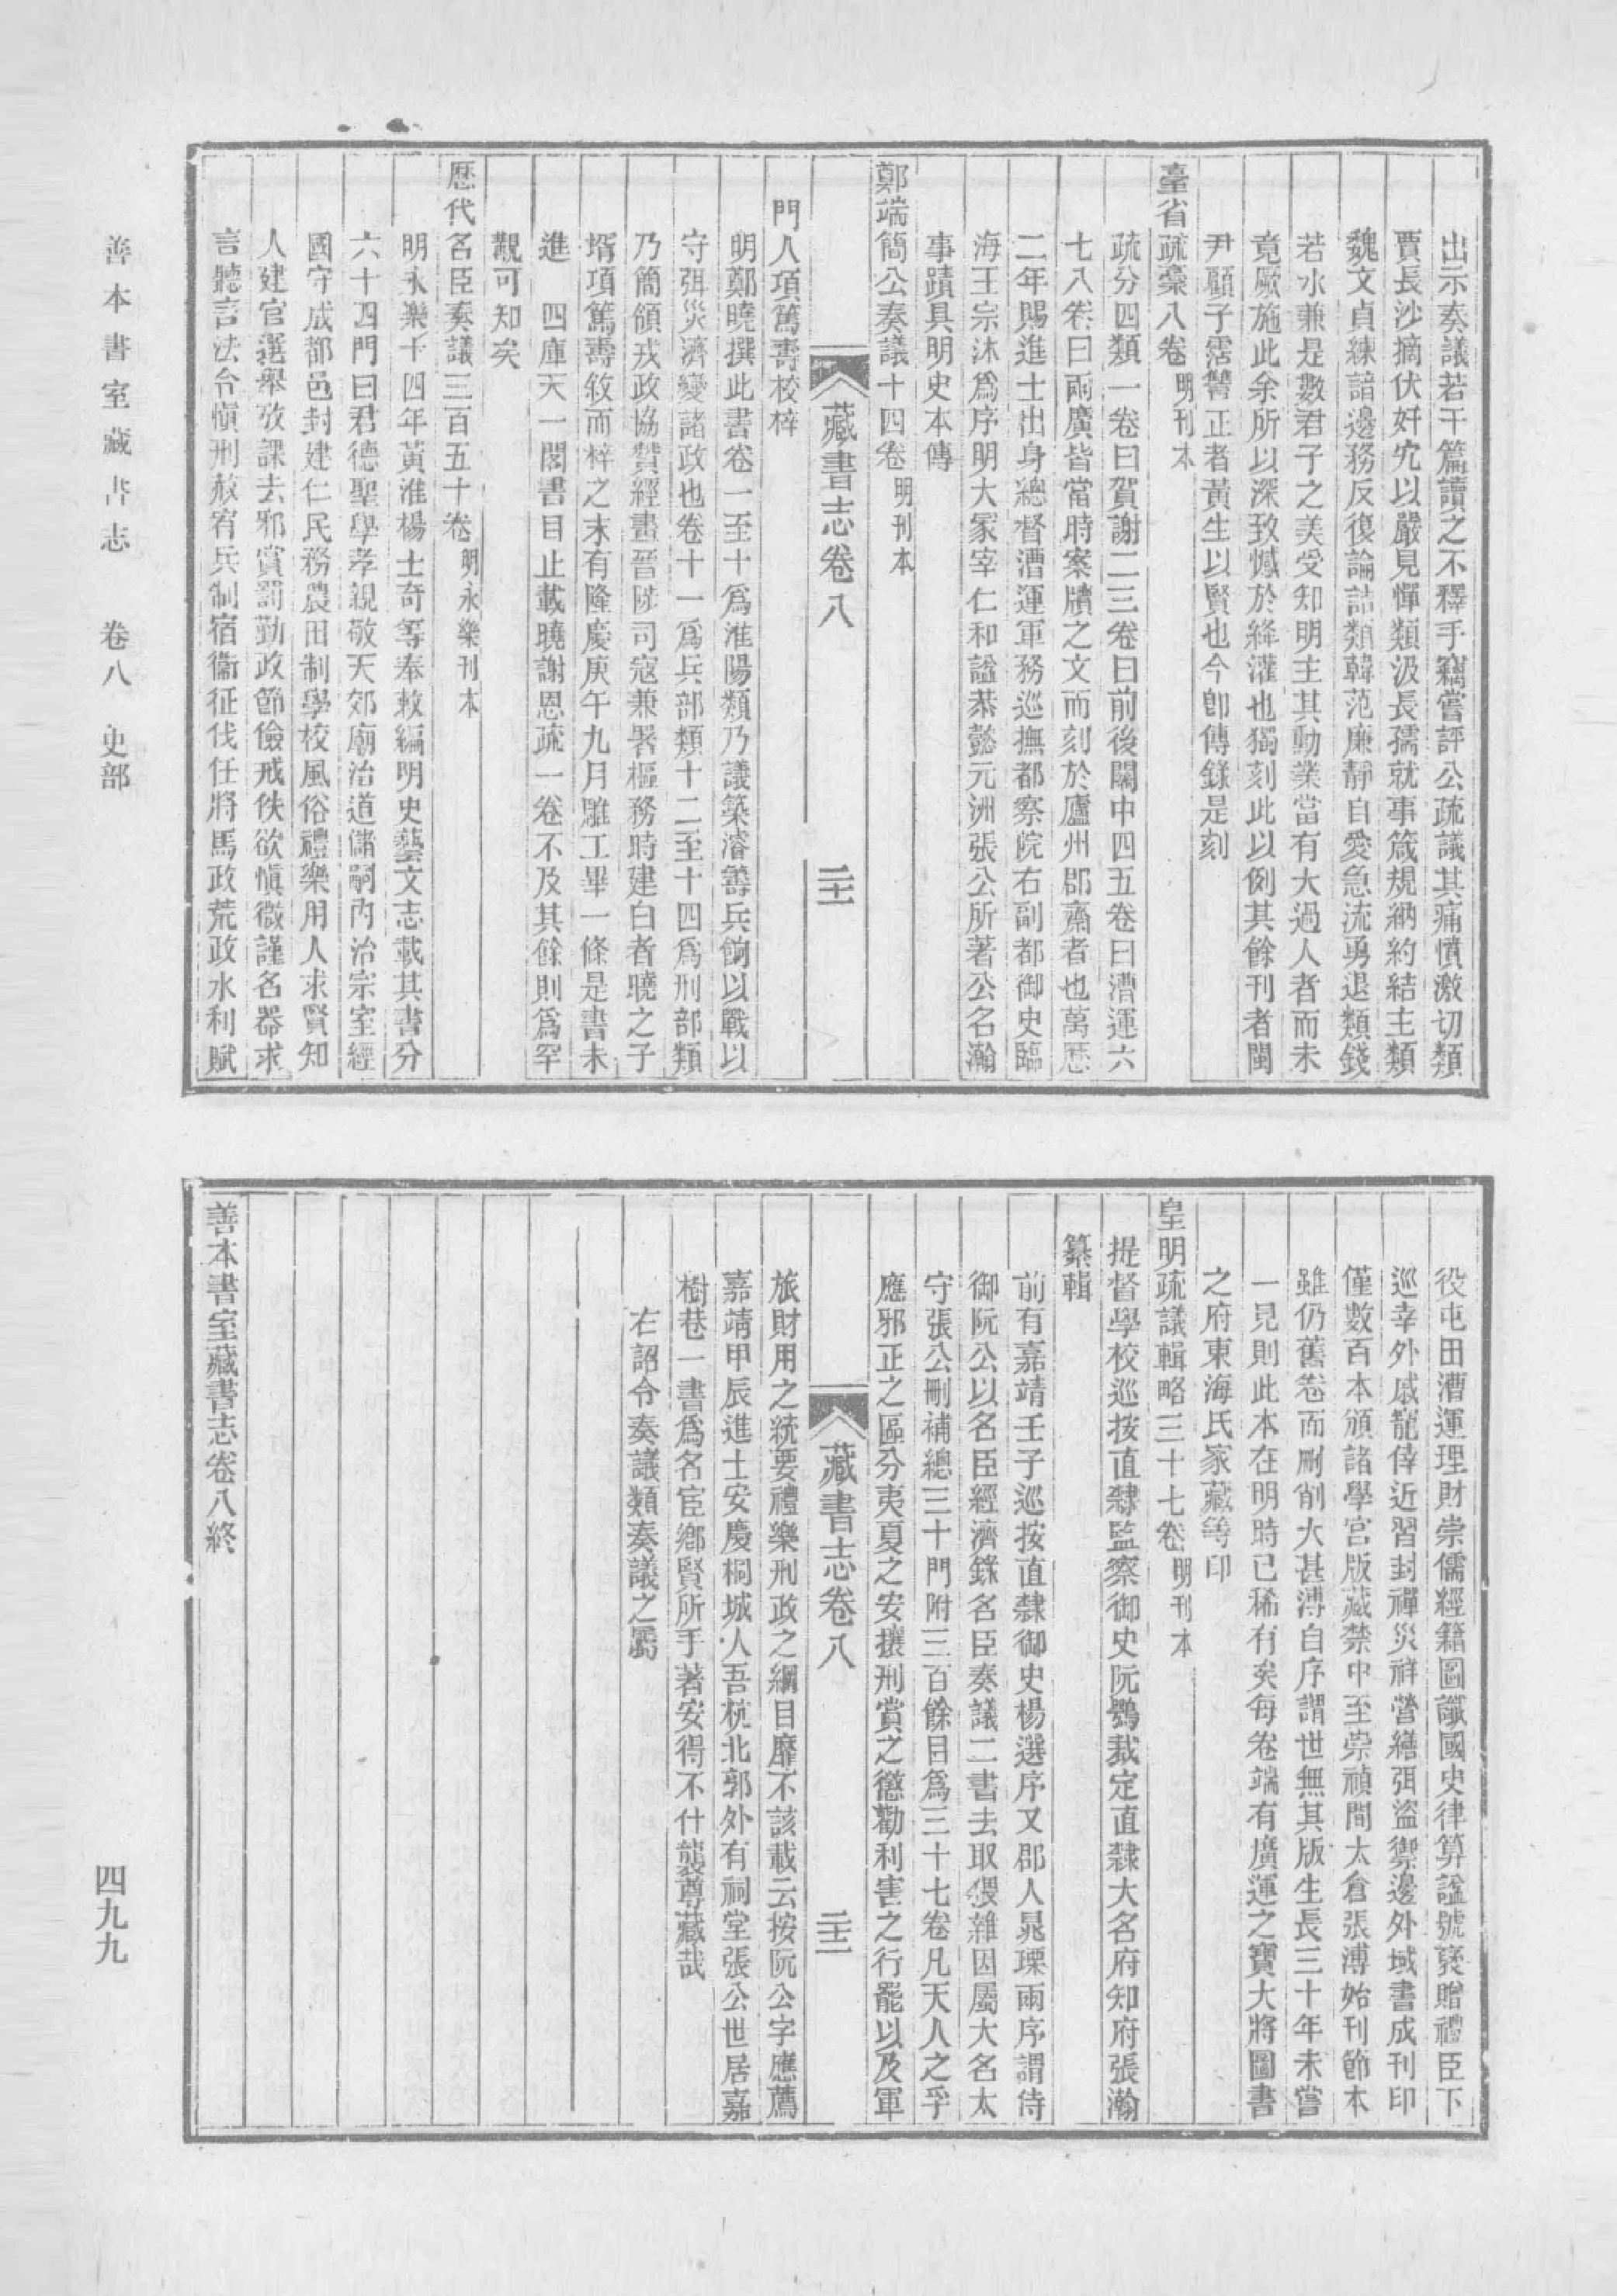 出示奏議若干篇讀之不釋手竊嘗評公疏議其痛憤激切類
賈長沙摘伏奸宄以嚴見憚類汲長孺就事箴規納約結主類
魏文貞練諳邊務反復論誌類韓范廉靜自愛急流勇退類錢
若水兼是數君子之美受知明主其勳業當有大過人者而未
竟厥施此余所以深致憾於絳灌也獨刻此以例其餘刊者閩
尹顧子霑讐正者黃生以賢也今卽傳錄是刻
臺省疏藁八卷 明刊本
疏分四類一卷曰賀謝二三卷曰前後關中四五卷曰漕運六
七八卷曰兩廣皆當時案牘之文而刻於廬州郡齋者也萬歷
二年賜進士出身總督漕運軍務巡撫都察院右副都御史臨
海王宗沐爲序明大冢宰仁和謚恭懿元洲張公所著公名瀚
事蹟具明史本傳
鄭端簡公奏議十四卷 明刊本
藏書志卷八 二十一
門人項篤壽校梓
明鄭曉撰此書卷一至十爲淮陽類乃議築濬籌兵餉以戰以
守弭災濟變諸政也卷十一爲兵部類十二至十四爲刑部類
乃簡領戎政協贊經畫晉陟司寇兼署樞務時建白者曉之子
壻項篤壽敘而梓之末有隆慶庚午九月雕工畢一條是書未
進 四庫天一閣書目止載曉謝恩疏一卷不及其餘則爲罕
覯可知矣
歷代名臣奏議三百五十卷 明永樂刊本
明永樂十四年黃淮楊士奇等奉敕編明史藝文志載其書分
六十四門曰君德聖學孝親敬天郊廟治道儲嗣內治宗室經
國守成都邑封建仁民務農田制學校風俗禮樂用人求賢知
人建官選舉攷課去邪賞罰勤政節儉戒佚欲愼微謹名器求
言聽言法令愼刑赦宥兵制宿衞征伐任將馬政荒政水利賦
役屯田漕運理財崇儒經籍圖讖國史律算謚號褒贈禮臣下
巡幸外戚寵倖近習封禪災祥營繕弭盜禦邊外域書成刊印
僅數百本頒諸學宮版藏禁中至崇禎間太倉張溥始刊節本
雖仍舊卷而刪削大甚溥自序謂世無其版生長三十年未嘗
一見則此本在明時已稀有矣每卷端有廣運之寶大將圖書
之府東海氏家藏等印
皇明疏議輯略三十七卷 明刊本
提督學校巡按直隸監察御史阮鶚裁定直隸大名府知府張瀚
纂輯
前有嘉靖壬子巡按直隸御史楊選序又郡人晁瑮兩序謂侍
御阮公以名臣經濟錄名臣奏議二書去取猥雜因屬大名太
守張公刪補總三十門附三百餘目爲三十七卷凡天人之孚
應邪正之區分夷夏之安攘刑賞之懲勸利害之行罷以及軍
藏書志卷八 二十二
旅財用之統要禮樂刑政之綱目靡不該載云按阮公字應薦
嘉靖甲辰進士安慶桐城人吾杭北郭外有祠堂張公世居嘉
樹巷一書爲名宦鄉賢所手著安得不什襲尊藏哉
右詔令奏議類奏議之屬
善本書室藏書志卷八終
善本書室藏書志 卷八 史部
四九九